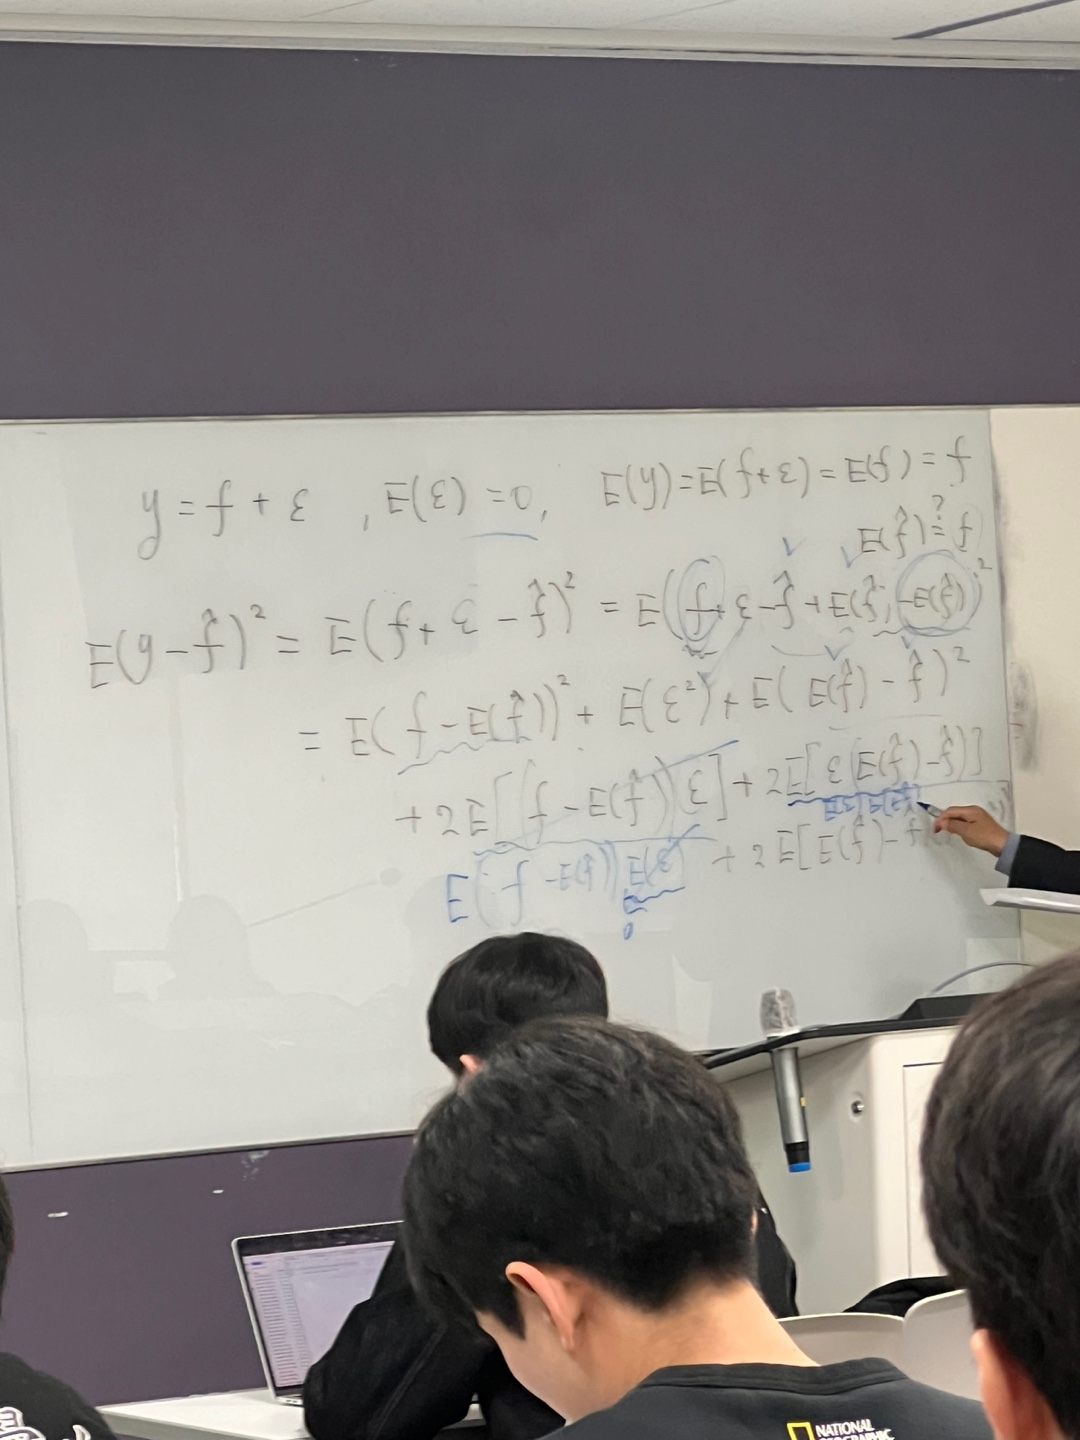 y = f + ε , E(ε) = 0, E(y) = E(f+ε) = E(f) = f
E(f̂) ≟ f
E(y - f̂)² = E(f + ε - f̂)² = E(f + ε - f̂ + E(f̂) - E(f̂))²
= E(f - E(f̂))² + E(ε²) + E(E(f̂) - f̂)²
+ 2E[(f - E(f̂))ε] + 2E[ε(E(f̂) - f̂)]
E(f - E(f̂))E(ε) + 2E[E(f̂) - f̂
0
NATIONAL
GEOGRAPHIC